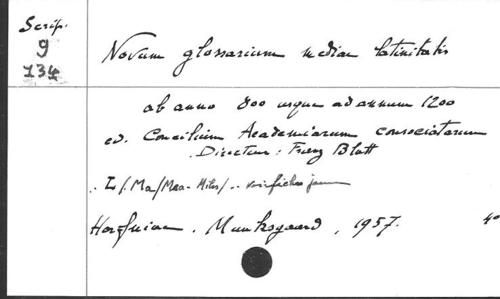 Scrip.
9
134
Novum glossarium mediae latinitatis
ab anno 800 usque ad annum 1200
ed. Concilium Academiarum consociatarum
Directeur: Franz Blatt
L/.Ma/Maa-Miles/.. voir fiches jaunes
Hafniae. Munksgaard, 1957.
4°